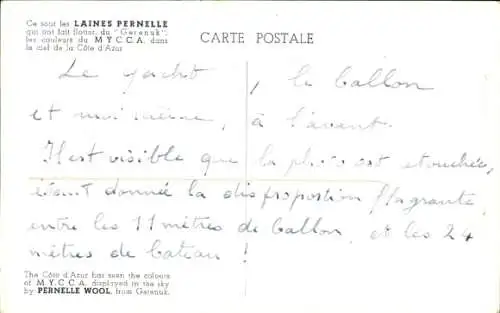 Ce sont les LAINES PERNELLE
qui ont fait flotter, du "Gerenuk",
les couleurs du M.Y.C.C.A. dans
le ciel de la Côte d'Azur
CARTE POSTALE
Le yacht, le ballon
et moi-même, à l'avant.
Il est visible que la photo est retouchée,
étant donnée la disproportion flagrante
entre les 11 mètres de ballon, et les 24
mètres de bateau !
The Côte d'Azur has seen the colours
of M.Y.C.C.A. displayed in the sky
by PERNELLE WOOL, from Gerenuk.